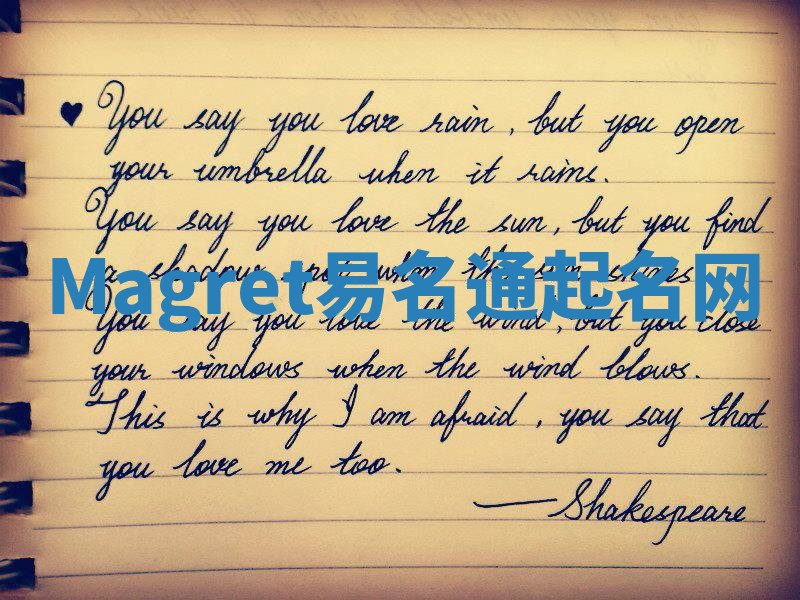 ♥ You say you love rain, but you open
your umbrella when it rains.
You say you love the sun, but you find
a shadow spot when the sun shines.
Magret易名通起名网
You say you love the wind, but you close
your windows when the wind blows.
This is why I am afraid, you say that
you love me too.
—Shakespeare